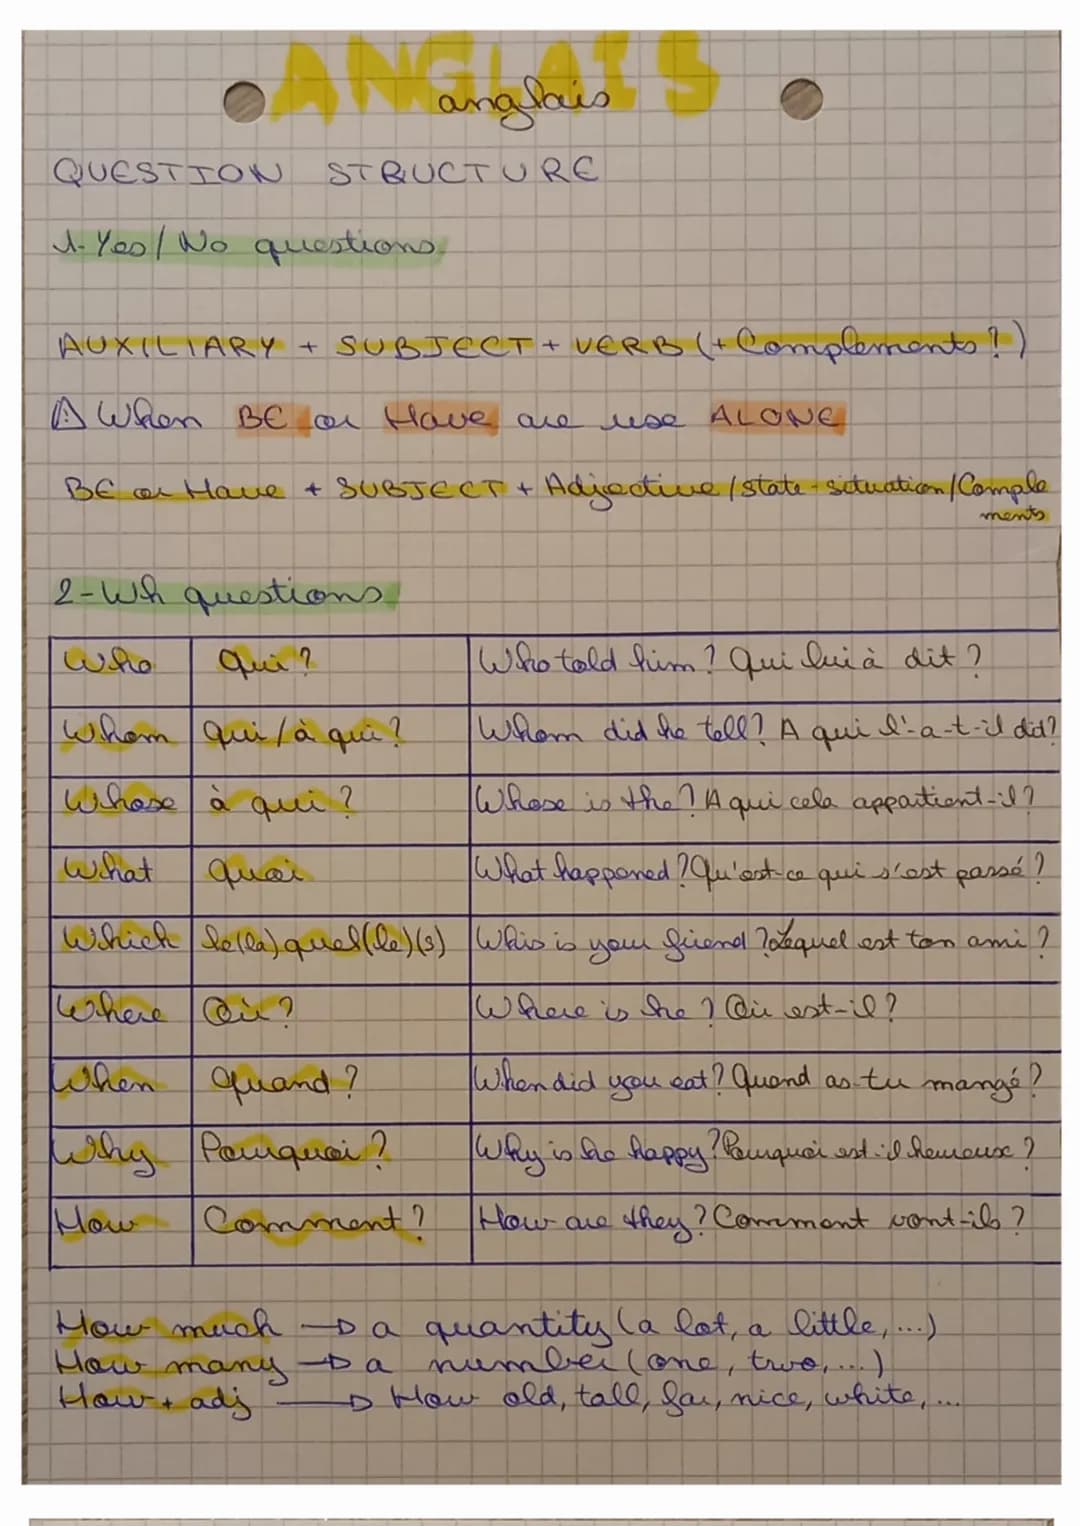 ANGLAIS
anglais
QUESTION STRUCTURE
1-Yes/No questions
AUXILIARY + SUBJECT + VERB (+Complements?)
⚠ When BE or Have are use ALONE
BE or Have + SUBJECT + Adjective/state-situation/Comple
ments
2-Wh questions
Who Qui? Who told him? Qui lui à dit?
Whom Qui/à qui? Whom did he tell? A qui l'-a-t-il dit?
Whose à qui? Whose is the? A qui cela appartient-il?
What Quoi What happened? Qu'est-ce qui s'est passé?
Which le(la)quel(le)(s) Whis is your friend? Lequel est ton ami?
Where Où? Where is he? Où est-il?
When Quand? When did you eat? Quand as-tu mangé?
Why Pourquoi? Why is he happy? Pourquoi est-il heureux?
How Comment? How are they? Comment vont-ils?
How much → a quantity (a lot, a little,...)
How many → a number (one, two,...)
How + adj → How old, tall, far, nice, white,...